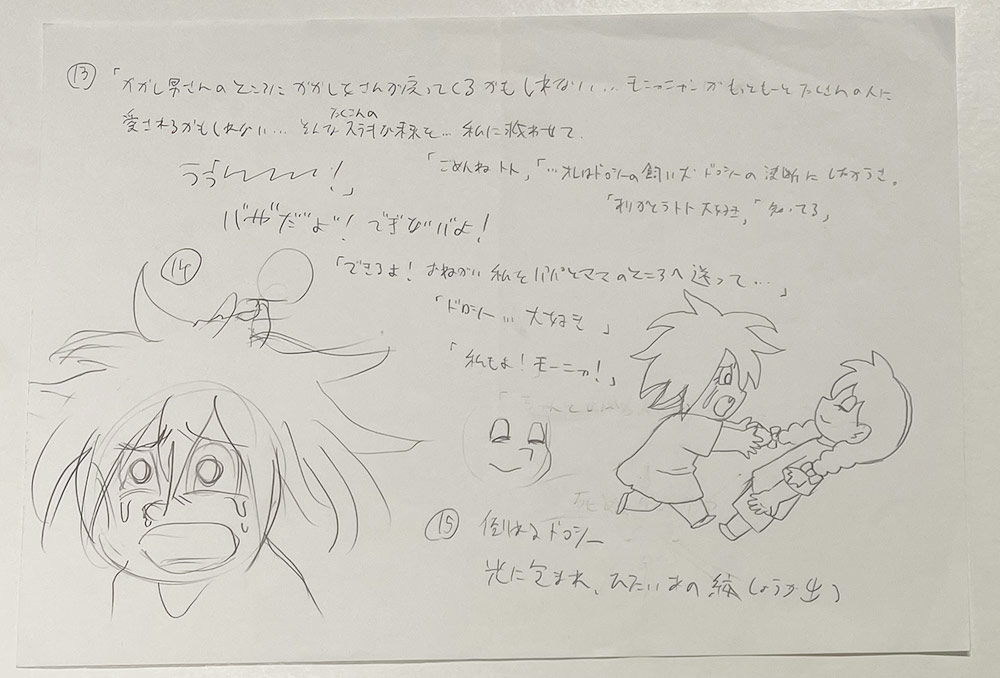 ⑬「かかし男さんのところにかかし女さんが戻ってくるかもしれない…モニカちゃんがもっともーっとたくさんの人に
愛されるかもしれない…そんなたくさんのステキな未来を…私に救わせて
ううんーーー!」
「ごめんねトト」「…オレはドロシーの飼い犬 ドロシーの決断にしたがうさ。
「ありがとうトト大好き」「知ってる」
バヤ"だ"よ"! でぎないよ!
⑭
「できるよ!おねがい私をパパとママのところへ送って…」
「ドロシー…大好き」
「私もよ!モーニカ!」
⑮ 倒れるドロシー
光に包まれ、ひたいあの 紋しょうが出